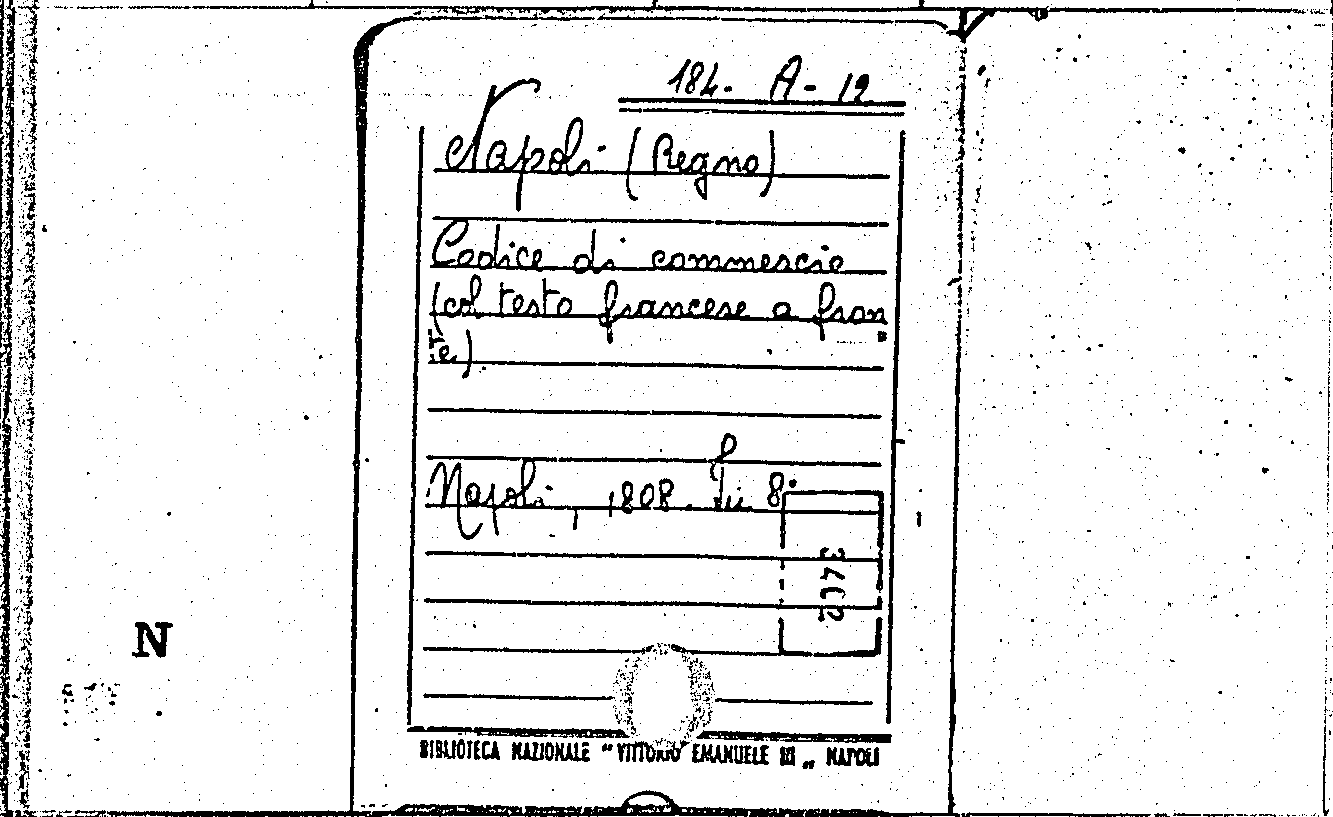 184. A - 12
Napoli (Regno)
Codice di commercio
(col testo francese a fron
te).
Napoli, 1808. In 8°
N
BIBLIOTECA NAZIONALE "VITTORIO EMANUELE III„ NAPOLI